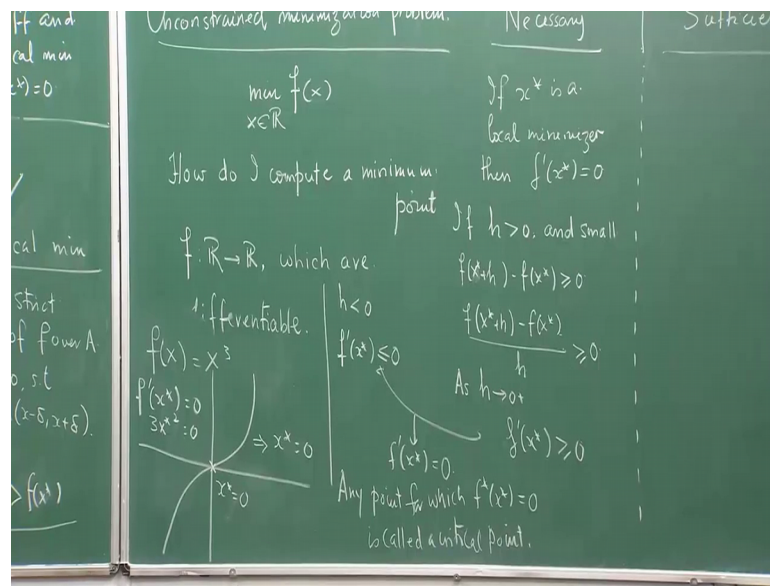 ff and
cal min
x*)=0
cal min
strict
of f over A.
s.t
(x-δ, x+δ).
> f(x*)
Unconstrained minimization problem.
min f(x)
x∈ℝ
How do I compute a minimum
point
f: ℝ→ℝ, which are
differentiable.
f(x) = x³
f'(x*)=0
3x*²=0
⇒ x*=0
x*=0
h<0
f'(x*) ≤0
f'(x*)=0.
Any point for which f'(x*)=0
is called a critical point.
Necessary
If x* is a
local minimizer
then f'(x*)=0
If h>0, and small
f(x*+h) - f(x*) ≥0
f(x*+h) - f(x*)
h
≥0
As h→0+
f'(x*) ≥0